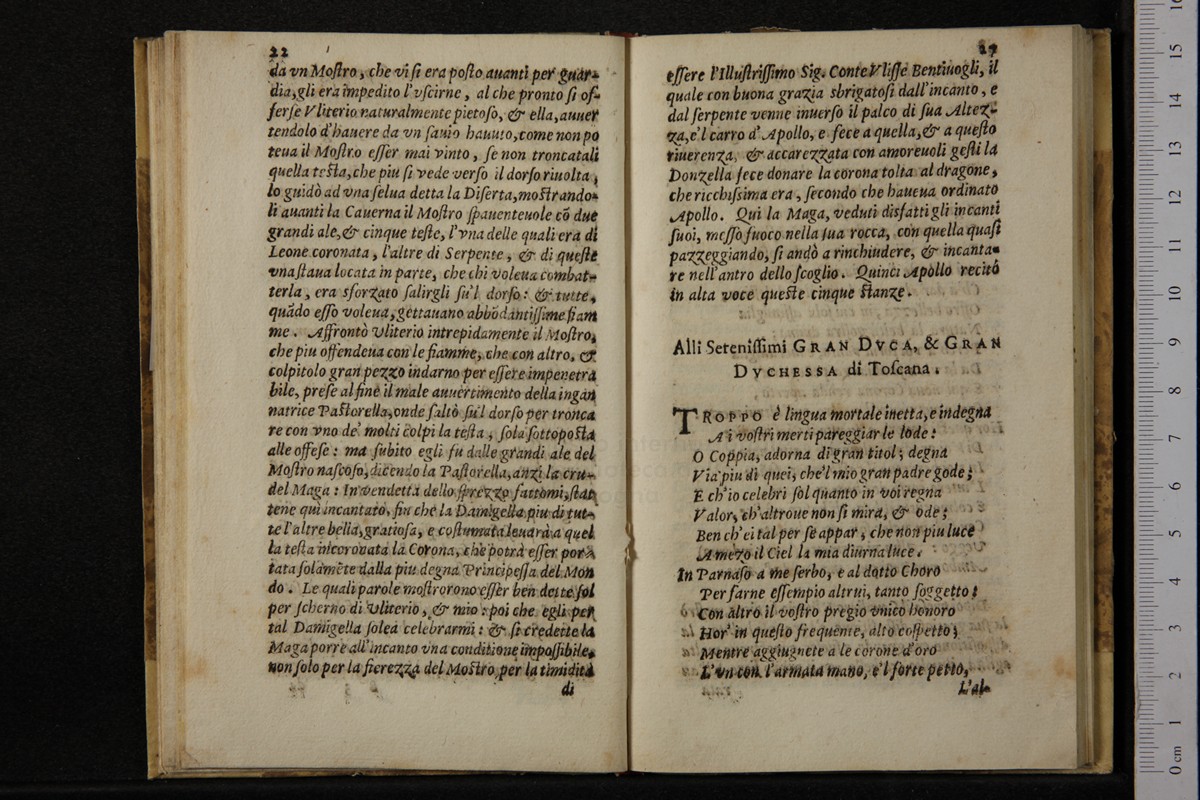 22
da vn Moſtro, che vi ſi era poſto auanti per guar-
dia, gli era impedito l'vſcirne, al che pronto ſi of-
ferſe Vliterio naturalmente pietoſo, & ella, auuer
tendolo d'hauere da vn ſauio hauuto, come non po
teua il Moſtro eſſer mai vinto, ſe non troncatali
quella teſta, che piu ſi vede verſo il dorſo riuolta,
lo guidò ad vna ſelua detta la Diſerta, moſtrando-
li auanti la Cauerna il Moſtro ſpauenteuole cō due
grandi ale, & cinque teſte, l'vna delle quali era di
Leone coronata, l'altre di Serpente, & di queſte
vna ſtaua locata in parte, che chi voleua combat-
terla, era sforzato ſalirgli ſu'l dorſo: & tutte,
quādo eſſo voleua, gettauano abbōdantiſſime fiam
me. Affrontò Vliterio intrepidamente il Moſtro,
che piu offendeua con le fiamme, che con altro, &
colpitolo gran pezzo indarno per eſſere impenetra
bile, preſe al fine il male auuertimento della ingan
natrice Paſtorella, onde ſaltò ſu'l dorſo per tronca
re con vno de' molti colpi la teſta, ſola ſottopoſta
alle offeſe: ma ſubito egli fu dalle grandi ale del
Moſtro naſcoſo, dicendo la Paſtorella, anzi la cru-
del Maga: In vendetta dello ſprezzo fattomi, ſtat
tene quì incantato, fin che la Damigella piu di tut-
te l'altre bella, gratioſa, e coſtumata leuarà a quel
la teſta incoronata la Corona, che potrà eſſer por-
tata ſolamēte dalla piu degna Principeſſa del Mon
do. Le quali parole moſtrorono eſſer ben dette ſol
per ſcherno di Vliterio, & mio: poi che egli per
tal Damigella ſolea celebrarmi: & ſi credette la
Maga porre all'incanto vna conditione impoſſibile,
non ſolo per la fierezza del Moſtro, per la timidità
di
eſſere l'Illuſtriſſimo Sig. Conte Vliſſe Bentiuogli, il
quale con buona grazia sbrigatoſi dall'incanto, e
dal ſerpente venne inuerſo il palco di ſua Altez-
za, e'l carro d'Apollo, e fece a quella, & a queſto
riuerenza, & accarezzata con amoreuoli geſti la
Donzella fece donare la corona tolta al dragone,
che ricchiſsima era, ſecondo che haueua ordinato
Apollo. Qui la Maga, veduti disfatti gli incanti
ſuoi, meſſo fuoco nella ſua rocca, con quella quaſi
pazzeggiando, ſi andò a rinchiudere, & incanta-
re nell'antro dello ſcoglio. Quinci Apollo recitò
in alta voce queſte cinque ſtanze.
Alli Sereniſſimi GRAN DVCA, & GRAN
DVCHESSA di Toſcana.
TROPPO è lingua mortale inetta, e indegna
A i voſtri merti pareggiar le lode:
O Coppia, adorna di gran titol; degna
Via piu di quei, che'l mio gran padre gode;
E ch'io celebri ſol quanto in voi regna
Valor, ch'altroue non ſi mira, & ode;
Ben ch'ei tal per ſe appar, che non piu luce
A mezo il Ciel la mia diurna luce.
In Parnaſo a me ſerbo, e al dotto Choro
Per farne eſſempio altrui, tanto ſoggetto;
Con altro il voſtro pregio vnico honoro
Hor' in queſto frequente, alto coſpetto;
Mentre aggiugnete a le corone d'oro
L'vn con l'armata mano, e'l forte petto,
L'al-